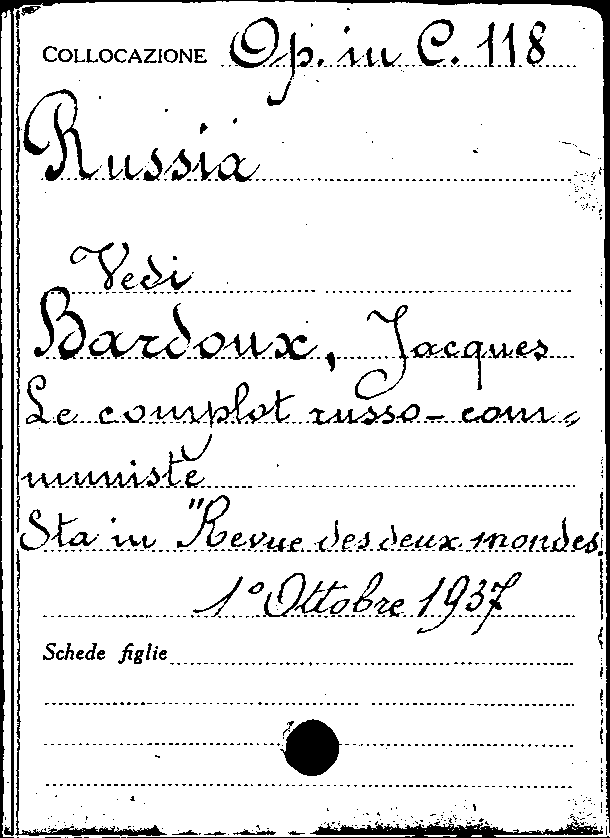 COLLOCAZIONE Op. in C. 118
Russia
Vedi
Bardoux, Jacques
Le complot russo-com=
muniste
Sta in "Revue des deux mondes.
1° Ottobre 1937
Schede figlie